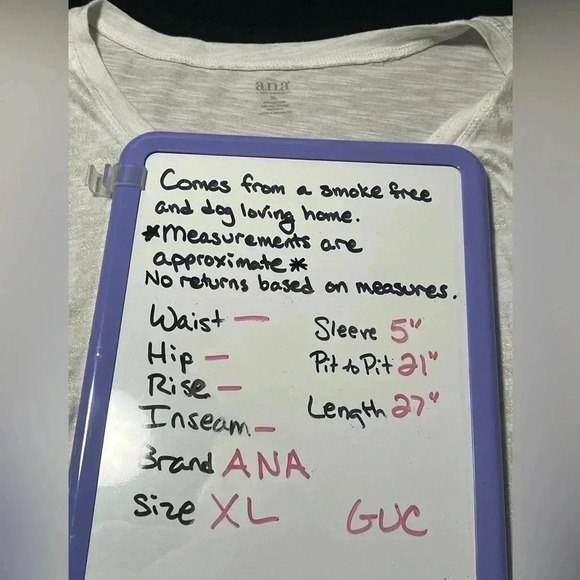 a.n.a
XL
Comes from a smoke free
and dog loving home.
*Measurements are
approximate*
No returns based on measures.
Waist —
Hip —
Rise —
Inseam —
Sleeve 5"
Pit to Pit 21"
Length 27"
Brand ANA
Size XL
GUC